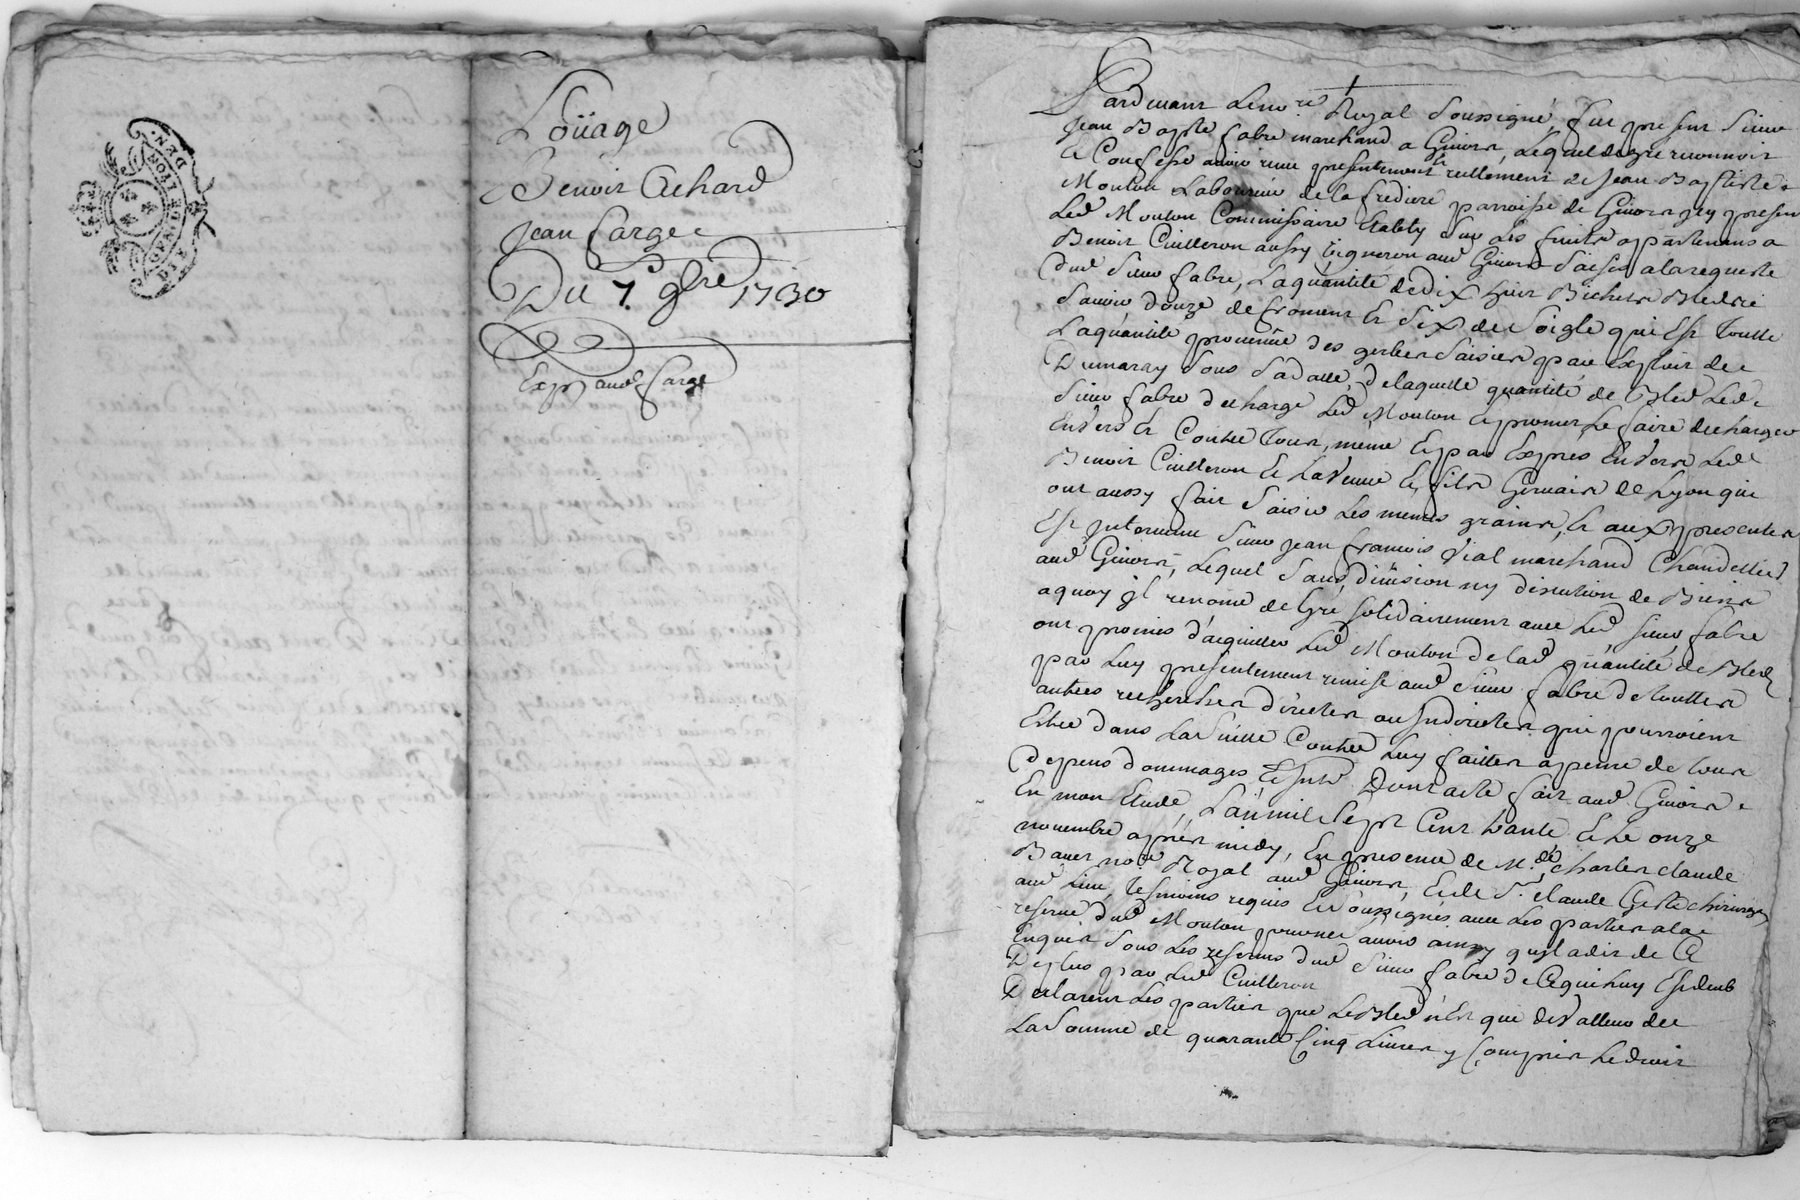 DEN. GN. LYON
SIX
Loüage
Benoit Achard
Jean Farge
Du 7e 9bre 1730
Exp. aud Farge
Pardevant Le no.re Royal Soussigné fut present Sieur
Jean Bapte fabre marchand a Givors, Lequel de gré reconnoit
et Confesse avoir reçu presentement et reellement de Jean Baptiste
Mouton Laboureur de la fredière parroisse de Givors jcy present
Led Mouton Commissaire Etably sur Les fruits appartenans a
Benoit Cuilleron aussy vigneron aud Givors Saisis a la requeste
dud Sieur fabre, La quantité de dix huit Bichets Bled
Sauoir douze de froment et Six de Soigle qui Est Toutte
La quantité prouenüe des gerbes Saisies par Exploit de
Dumaray Sous Sa datte, de laquelle quantité de Bled Led
Sieur fabre decharge Led Mouton et promet Le faire decharger
Envers et Contre Tous, même et par Exprès Envers Led
Benoit Cuilleron et La Veuue et fils Germain de Lyon qui
ont aussy fait Saisir Les memes grains, et aux presentes
Est Interuenu Sieur Jean francois Vial marchand Chandellier
aud Givors, Lequel Sans diuision ny discution de Biens
a quoy jl renonce de Gré solidairement avec Led Sieur fabre
ont promis d'acquitter Led Mouton de lad quantité de Bled
par Luy presentement remise aud Sieur fabre de touttes
autres recherches directes ou Indirectes qui pourroient
Estre dans La Suitte Contre Luy faittes a peine de tous
depens dommages et Jnts Dont acte fait aud Givors
En mon Etude, L'an mil Sept Cent trante et Le onze
novembre après midy, En presence de M.e Charles claude
Bauet no.re Royal aud Givors, et de S.r claude Geste chirurgien
aud Lieu, Tesmoins requis et Soussignés avec Les parties a la
reserve dud Mouton pour ne Sauoir ainsy qu'il a dit de Ce
Enquis Sous Les reserves dud Sieur fabre de Ce qui Luy Est deub
De plus par Led Cuilleron
Declarent Les parties que Le Bled n'Est que de Valleur de
La Somme de quarante Cinq Liures y Compris Le droit